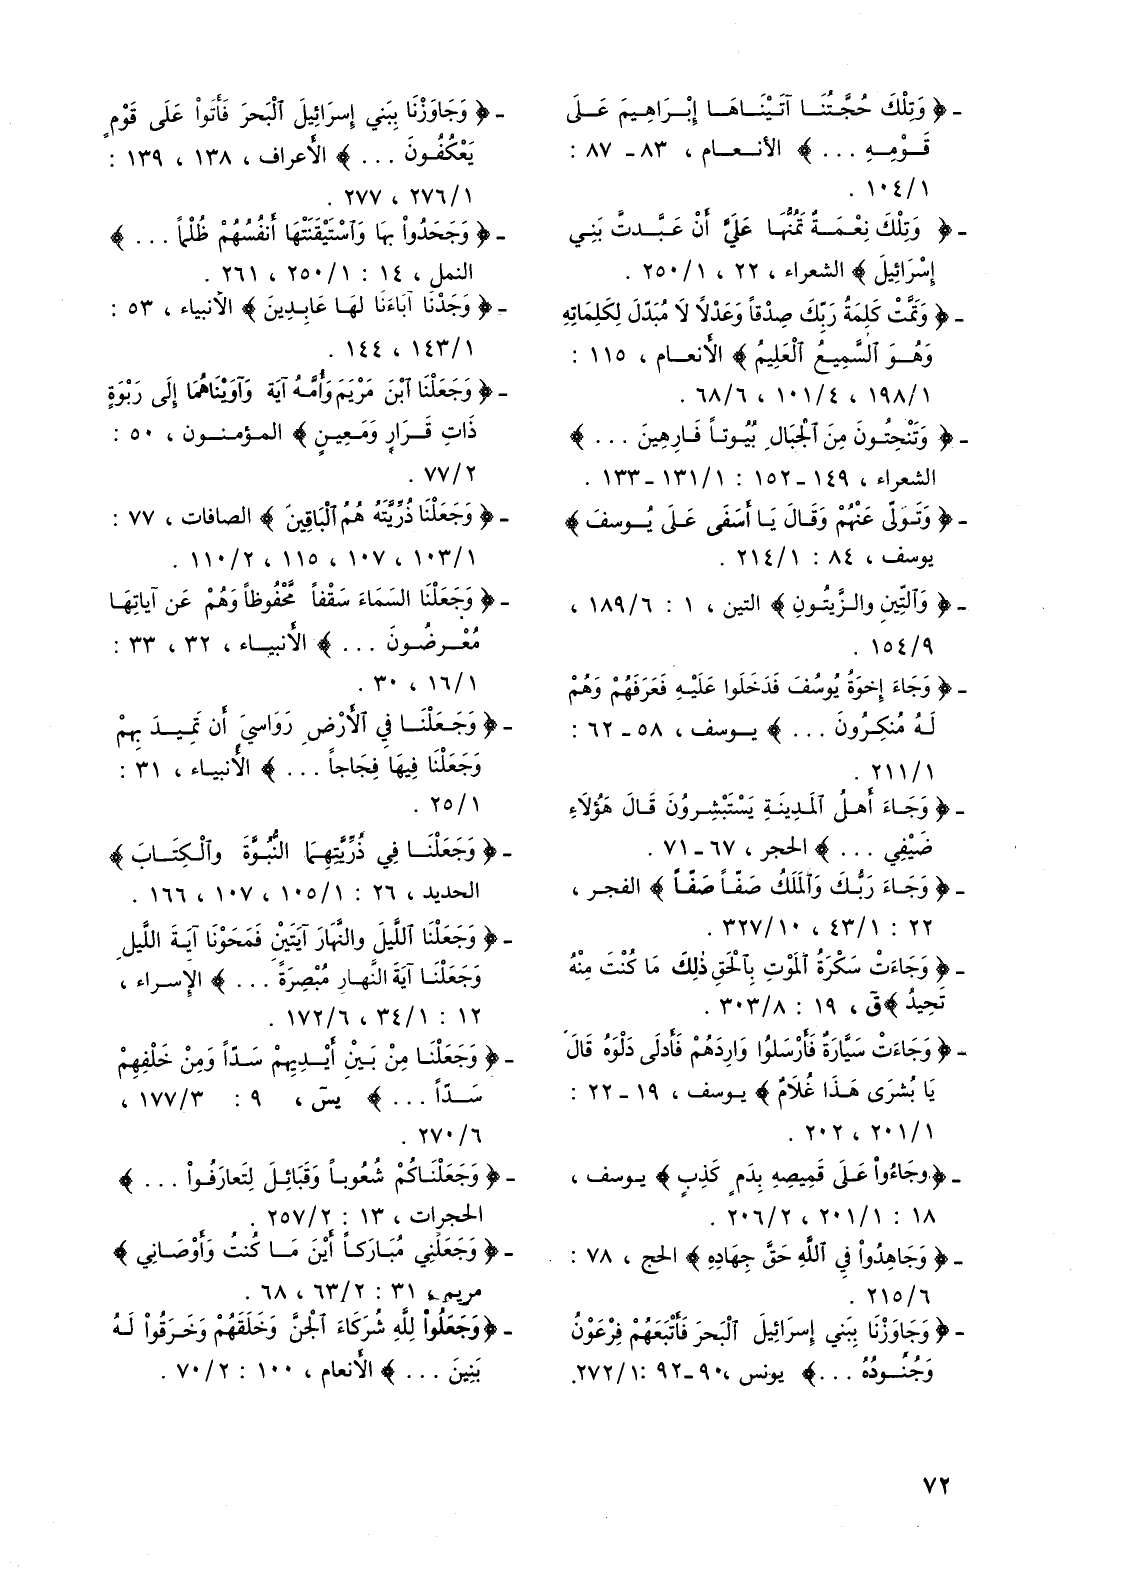 - ﴿ وَتِلْكَ حُجَّتُنَا آتَيْنَاهَا إِبْرَاهِيمَ عَلَى
قَوْمِهِ ... ﴾ الأنعام ، ٨٣ - ٨٧ :
١٠٤/١ .
- ﴿ وَتِلْكَ نِعْمَةٌ تَمُنُّهَا عَلَيَّ أَنْ عَبَّدتَّ بَنِي
إِسْرَائِيلَ ﴾ الشعراء ، ٢٢ ، ٢٥٠/١ .
- ﴿ وَتَمَّتْ كَلِمَةُ رَبِّكَ صِدْقاً وَعَدْلاً لَا مُبَدِّلَ لِكَلِمَاتِهِ
وَهُوَ ٱلسَّمِيعُ ٱلْعَلِيمُ ﴾ الأنعام ، ١١٥ :
١٩٨/١ ، ١٠١/٤ ، ٦٨/٦ .
- ﴿ وَتَنْحِتُونَ مِنَ ٱلْجِبَالِ بُيُوتاً فَارِهِينَ ... ﴾
الشعراء ، ١٤٩ - ١٥٢ : ١٣١/١ - ١٣٣ .
- ﴿ وَتَوَلَّى عَنْهُمْ وَقَالَ يَا أَسَفَى عَلَى يُوسفَ ﴾
يوسف ، ٨٤ : ٢١٤/١ .
- ﴿ وَٱلتِّينِ والزَّيتُونِ ﴾ التين ، ١ : ١٨٩/٦ ،
١٥٤/٩ .
- ﴿ وَجَاءَ إِخوَةُ يُوسُفَ فَدَخَلُوا عَلَيْهِ فَعَرَفَهُمْ وَهُمْ
لَهُ مُنكِرُونَ ... ﴾ يوسف ، ٥٨ - ٦٢ :
٢١١/١ .
- ﴿ وَجَاءَ أَهلُ ٱلمَدِينَةِ يَسْتَبْشِرُونَ قَالَ هَؤُلَاءِ
ضَيْفِي ... ﴾ الحجر ، ٦٧ - ٧١ .
- ﴿ وَجَاءَ رَبُّكَ وَٱلمَلَكُ صَفّاً صَفّاً ﴾ الفجر ،
٢٢ : ٤٣/١ ، ٣٢٧/١٠ .
- ﴿ وَجَاءَتْ سَكْرَةُ ٱلمَوْتِ بِٱلْحَقِ ذٰلِكَ مَا كُنْتَ مِنْهُ
تَحِيدُ ﴾ قَ ، ١٩ : ٣٠٣/٨ .
- ﴿ وَجَاءَتْ سَيَّارَةٌ فَأَرْسَلُوا وَارِدَهُمْ فَأَدلَى دَلْوَهُ قَالَ
يَا بُشرَى هَذَا غُلَامٌ ﴾ يوسف ، ١٩ - ٢٢ :
٢٠١/١ ، ٢٠٢ .
- ﴿ وجَاءُواْ عَلَى قَمِيصِهِ بِدَمٍ كَذِبٍ ﴾ يوسف ،
١٨ : ٢٠١/١ ، ٢٠٦/٢ .
- ﴿ وَجَاهِدُواْ فِي ٱللَّهِ حَقَّ جِهَادِهِ ﴾ الحج ، ٧٨ :
٢١٥/٦ .
- ﴿ وَجَاوَزْنَا بِبَنِي إِسرَائِيلَ ٱلْبَحرَ فَأَتْبَعَهُمْ فِرْعَوْنُ
وَجُنُودُهُ ... ﴾ يونس ، ٩٠ - ٩٢ : ٢٧٢/١.
- ﴿ وَجَاوَزْنَا بِبَنِي إِسرَائِيلَ ٱلْبَحرَ فَأَتَواْ عَلَى قَوْمٍ
يَعْكُفُونَ ... ﴾ الأَعراف ، ١٣٨ ، ١٣٩ :
٢٧٦/١ ، ٢٧٧ .
- ﴿ وَجَحَدُواْ بِهَا وَٱسْتَيْقَنَتْهَا أَنفُسُهُمْ ظُلْماً ... ﴾
النمل ، ١٤ : ٢٥٠/١ ، ٢٦١ .
- ﴿ وَجَدْنَا آبَاءَنَا لَهَا عَابِدِينَ ﴾ الأنبياء ، ٥٣ :
١٤٣/١ ، ١٤٤ .
- ﴿ وَجَعَلْنَا ٱبْنَ مَرْيَمَ وَأُمَّهُ آيَة وَآوَيْنَاهُمَا إِلَى رَبْوَةٍ
ذَاتِ قَرَارٍ وَمَعِينٍ ﴾ المؤمنون ، ٥٠ :
٧٧/٢ .
- ﴿ وَجَعَلْنَا ذُرِّيَّتَهُ هُمُ ٱلْبَاقِينَ ﴾ الصافات ، ٧٧ :
١٠٣/١ ، ١٠٧ ، ١١٥ ، ١١٠/٢ .
- ﴿ وَجَعَلْنَا السَمَاءَ سَقْفاً مَّحْفُوظاً وَهُمْ عَن آياتِهَا
مُعْرِضُونَ ... ﴾ الأَنبياء ، ٣٢ ، ٣٣ :
١٦/١ ، ٣٠ .
- ﴿ وَجَعَلْنَا فِي ٱلأَرْضِ رَوَاسِيَ أَن تَمِيدَ بِهِمْ
وَجَعَلْنَا فِيهَا فِجَاجاً ... ﴾ الأَنبياء ، ٣١ :
٢٥/١ .
- ﴿ وَجَعَلْنَا فِي ذُرِّيَّتِهِمَا النُّبُوَّةَ وٱلْكِتَابَ ﴾
الحديد ، ٢٦ : ١٠٥/١ ، ١٠٧ ، ١٦٦ .
- ﴿ وَجَعَلْنَا ٱللَّيلَ والنَّهَارَ آيَتَيْنِ فَمَحَوْنَا آيَةَ اللَّيلِ
وَجَعَلْنَا آيَةَ النَّهارِ مُبْصِرَةً ... ﴾ الإسراء ،
١٢ : ٣٤/١ ، ١٧٢/٦ .
- ﴿ وَجَعَلْنَا مِنْ بَيْنِ أَيْدِيهِمْ سَدّاً وَمِنْ خَلْفِهِمْ
سَدّاً ... ﴾ يسَ ، ٩ : ١٧٧/٣ ،
٢٧٠/٦ .
- ﴿ وَجَعَلْنَاكُمْ شُعُوباً وَقَبَائِلَ لِتَعارَفُواْ ... ﴾
الحجرات ، ١٣ : ٢٥٧/٢ .
- ﴿ وَجَعَلَنِي مُبَارَكاً أَيْنَ مَا كُنتُ وَأَوْصَانِي ﴾
مريم ، ٣١ : ٦٣/٢ ، ٦٨ .
- ﴿ وَجَعَلُواْ لِلَّهِ شُرَكَاءَ ٱلجِنَّ وَخَلَقَهُمْ وَخَرَقُواْ لَهُ
بَنِينَ ... ﴾ الأَنعام ، ١٠٠ : ٧٠/٢ .
٧٢